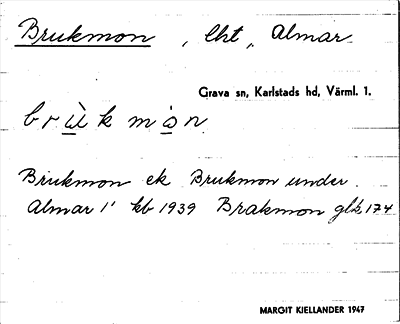 Brukmon, lht, Almar
Grava sn, Karlstads hd, Värml. 1.
brùkmòn
Brukmon ek Brukmon under
Almar 1' kb 1939 Brakmon glk 174
MARGIT KIELLANDER 1947